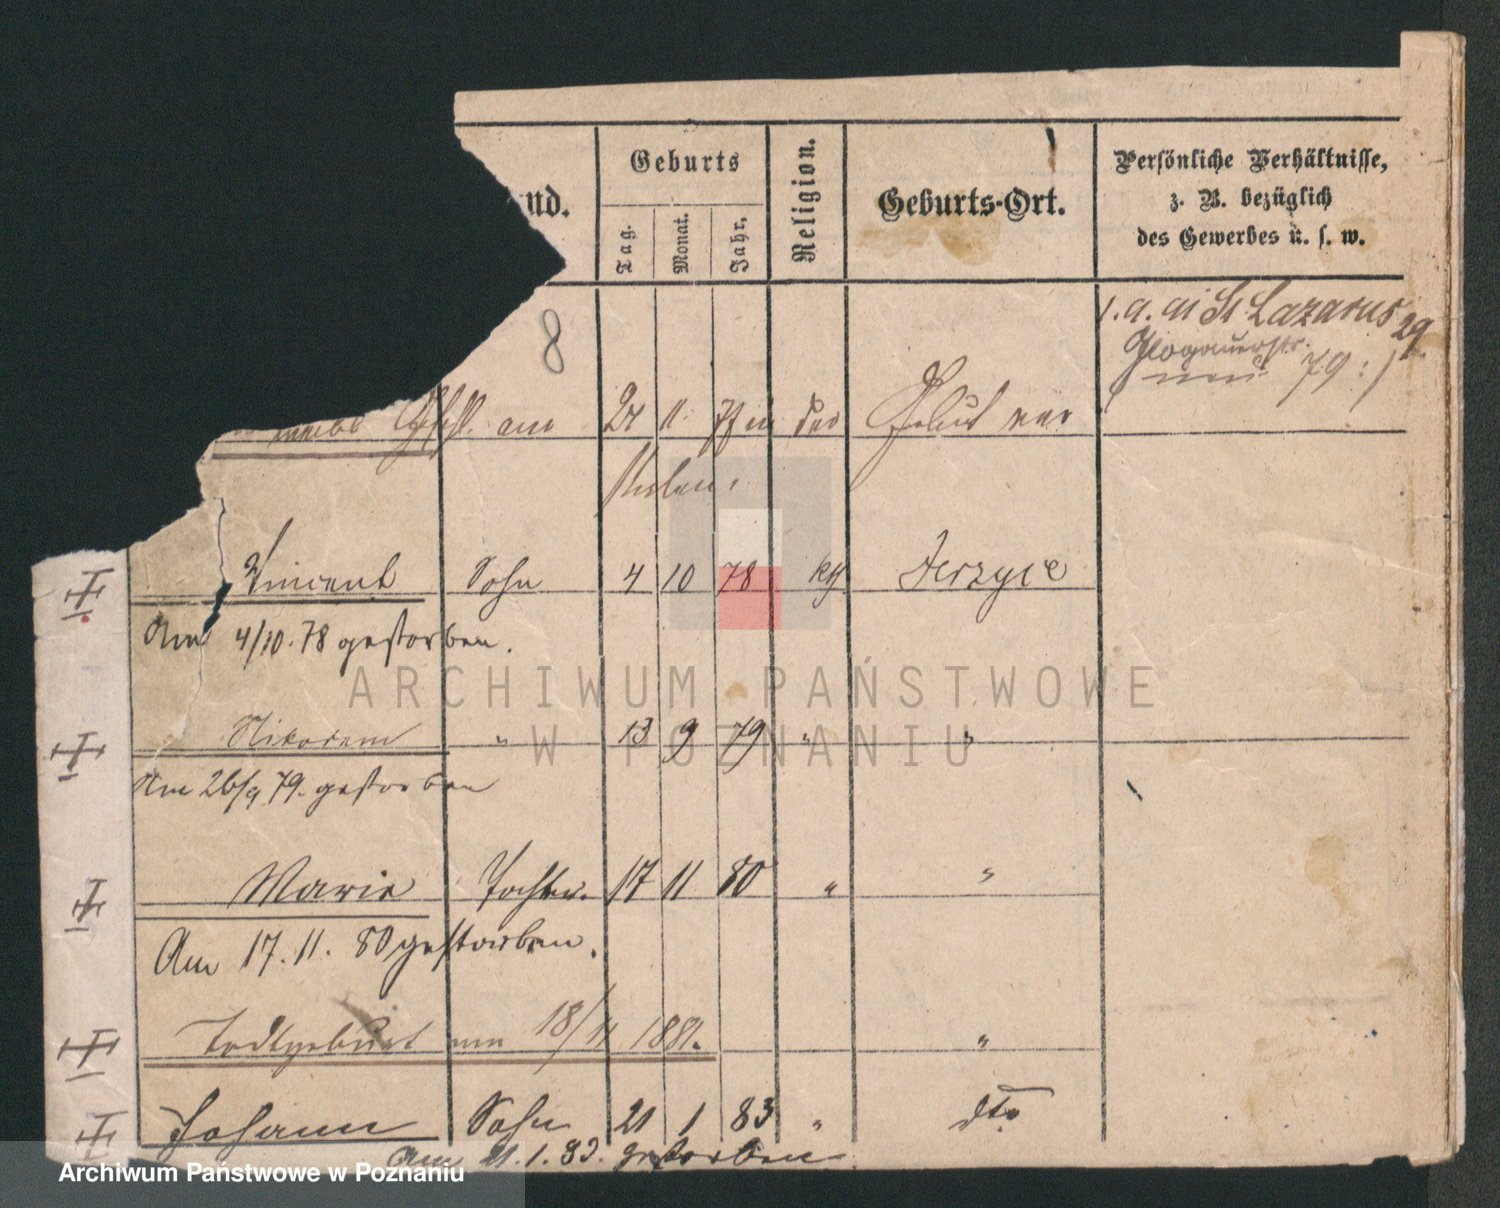 nd.
Geburts
Tag.
Monat.
Jahr.
Religion.
Geburts-Ort.
Persönliche Verhältnisse,
z. B. bezüglich
des Gewerbes u. s. w.
8
St Lazarus 29.
Glogauerstr.
neu 79:)
am 21 11. 77 in der Geburt ver
storben.
Vincent Sohn 4 10 78 kth Jerzyce
Am 4/10. 78 gestorben.
Nikodem " 13 9 79 " "
Am 26/9 79. gestorben
Marie Tochter. 17 11 80 " "
Am 17. 11. 80 gestorben.
Todtgeburt am 18/11 1881. "
Johann Sohn 21 1 83 " dto
Am 21. 1. 83. gestorben
ARCHIWUM PAŃSTWOWE
W POZNANIU
Archiwum Państwowe w Poznaniu